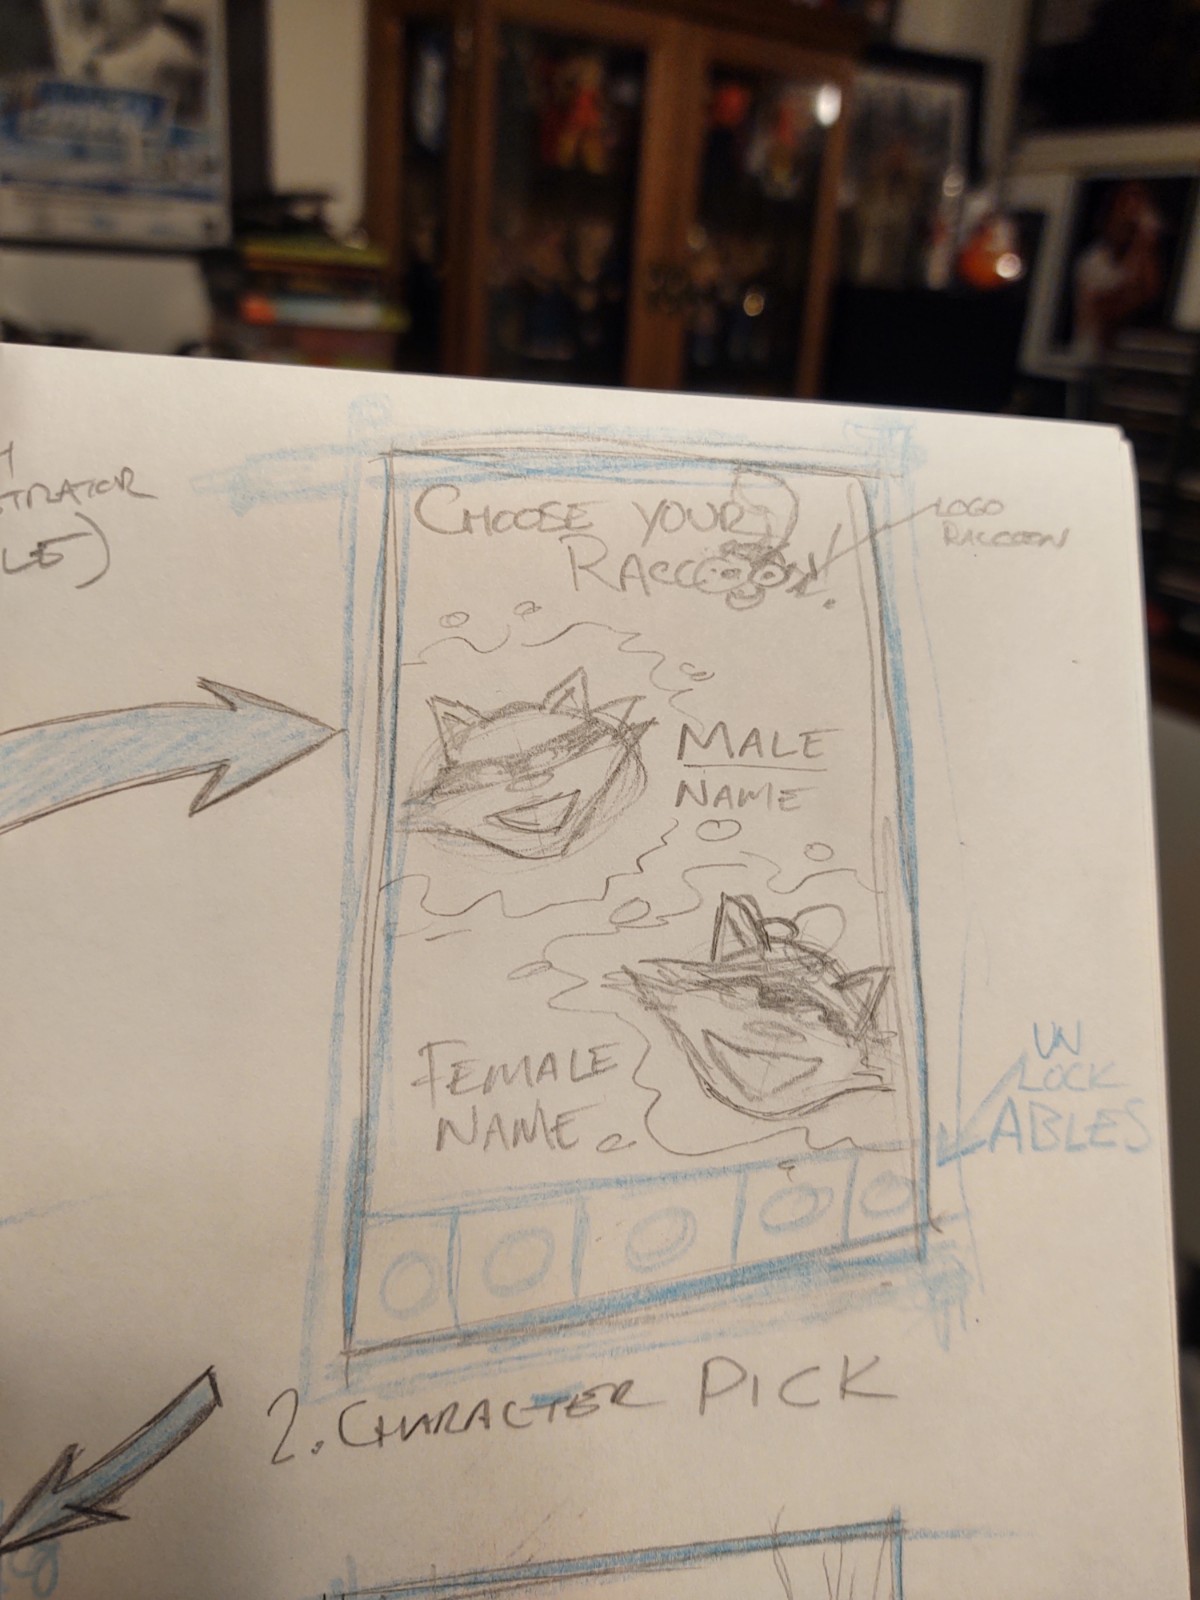 CHOOSE YOUR
RACCOON!
LOGO
RACCOON
MALE
NAME
FEMALE
NAME
UN
LOCK
ABLES
2. CHARACTER PICK